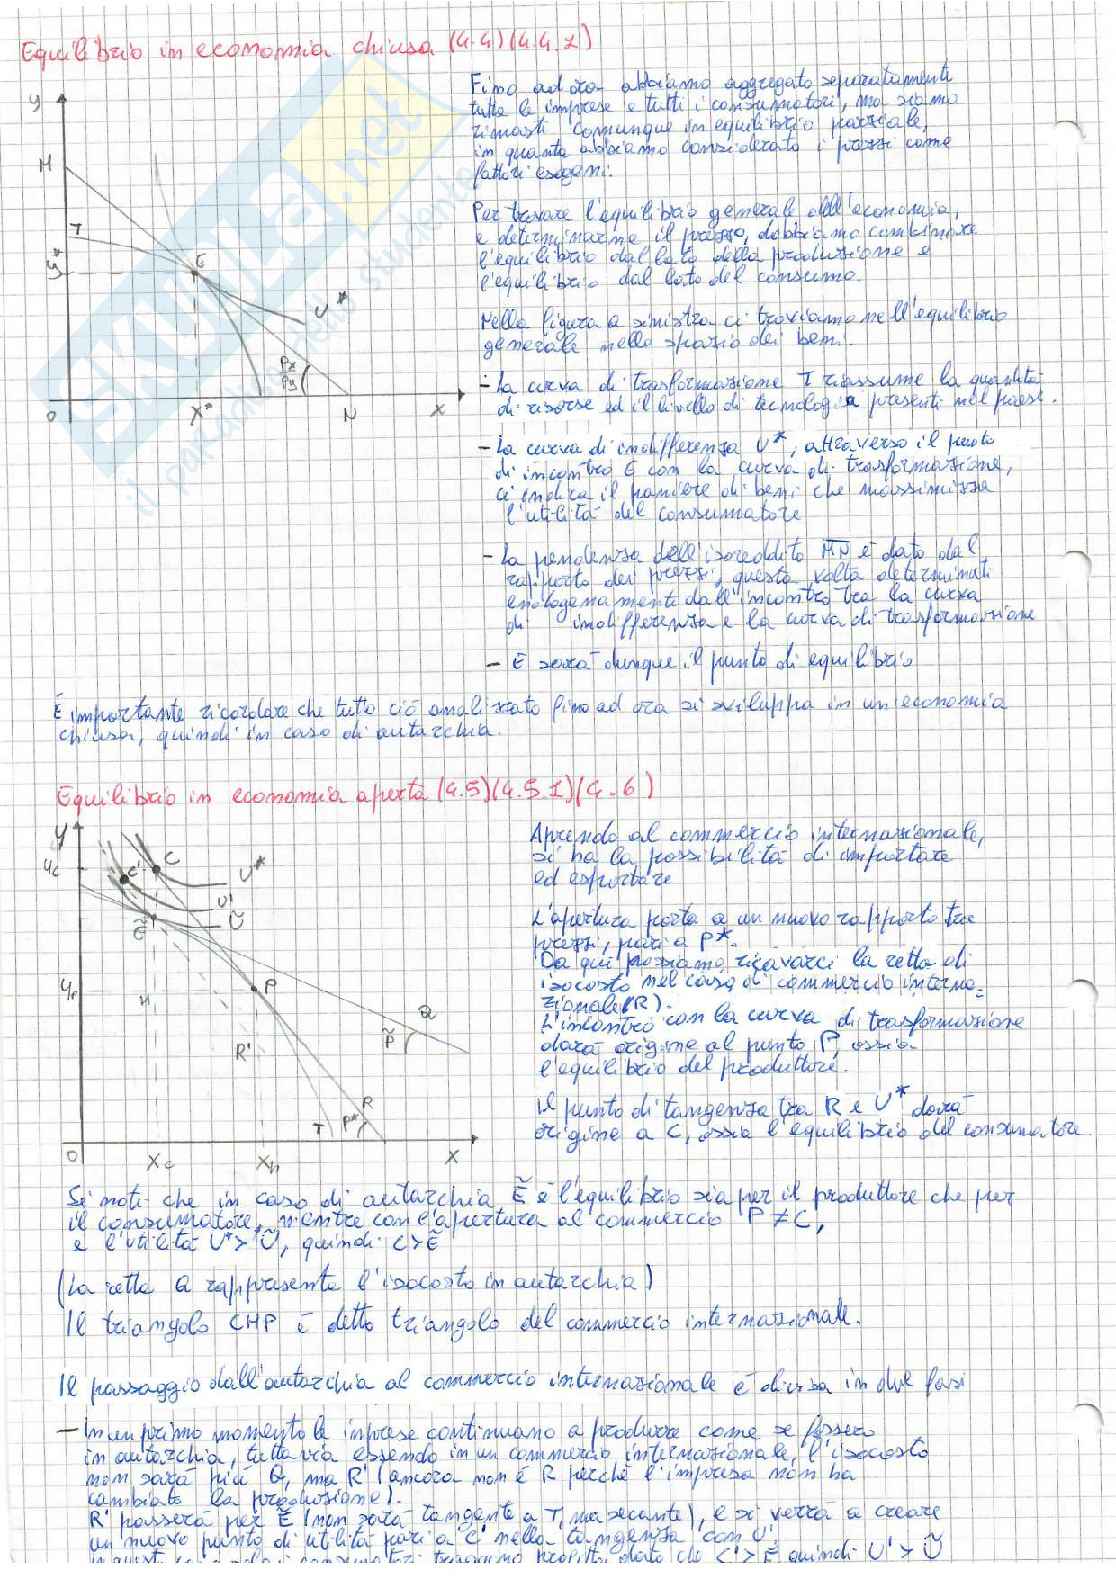 Equilibrio in economia chiusa (4.4)(4.4.1)
Fino ad ora abbiamo aggregato separatamente
tutte le imprese e tutti i consumatori, ma siamo
rimasti comunque in equilibrio parziale,
in quanto abbiamo considerato i prezzi come
fattori esogeni.
Per trovare l'equilibrio generale dell'economia,
e determinarne il prezzo, dobbiamo combinare
l'equilibrio dal lato della produzione e
l'equilibrio dal lato del consumo.
Nella figura a sinistra ci troviamo nell'equilibrio
generale nello spazio dei beni.
- La curva di trasformazione T riassume la quantità
di risorse ed il livello di tecnologia presenti nel paese.
- La curva di indifferenza U*, attraverso il punto
di incontro E con la curva di trasformazione,
ci indica il paniere di beni che massimizza
l'utilità del consumatore
- La pendenza dell'isoreddito MN è dato dal
rapporto dei prezzi, questa volta determinati
endogenamente dall'incontro tra la curva
di indifferenza e la curva di trasformazione
- E sarà dunque il punto di equilibrio
y
M
T
y*
E
U*
Px
Py
O
X*
N
X
È importante ricordare che tutto ciò analizzato fino ad ora si sviluppa in un'economia
chiusa, quindi in caso di autarchia.
Equilibrio in economia aperta (4.5)(4.5.1)(4.6)
Aprendo al commercio internazionale,
si ha la possibilità di importare
ed esportare
L'apertura porta a un nuovo rapporto tra
prezzi, pari a P*.
Da qui possiamo ricavarci la retta di
isocosto nel caso di commercio interna=
zionale (R).
L'incontro con la curva di trasformazione
darà origine al punto P, ossia
l'equilibrio del produttore.
Il punto di tangenza tra R e U* darà
origine a C, ossia l'equilibrio del consumatore
y
yc
C'
C
U*
U'
Ũ
Ẽ
yp
H
P
Q
P̃
R'
T
P*
R
O
Xc
Xp
X
Si noti che in caso di autarchia Ẽ è l'equilibrio sia per il produttore che per
il consumatore, mentre con l'apertura al commercio P ≠ C,
e l'utilità U* > Ũ, quindi C > Ẽ
(La retta Q rappresenta l'isocosto in autarchia)
Il triangolo CHP è detto triangolo del commercio internazionale.
Il passaggio dall'autarchia al commercio internazionale è divisa in due fasi
- In un primo momento le imprese continuano a produrre come se fossero
in autarchia, tuttavia essendo in un commercio internazionale, l'isocosto
non sarà più Q, ma R' (ancora non è R perché l'impresa non ha
cambiato la produzione).
R' passerà per Ẽ (non sarà tangente a T, ma secante), e si verrà a creare
un nuovo punto di utilità pari a C' nella tangenza con U'.
C' > Ẽ quindi U' > Ũ